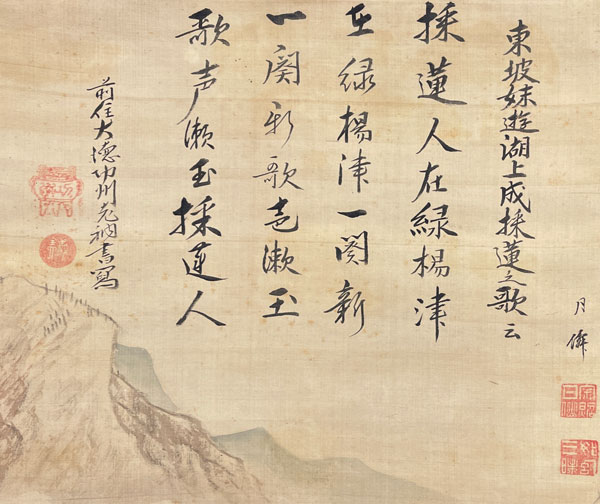 月僊
東坡妹遊湖上成採蓮之歌云
採蓮人在緑楊津
在緑楊津一闋新
一闋新歌声漱玉
歌声漱玉採蓮人
前住大徳州老衲書寫